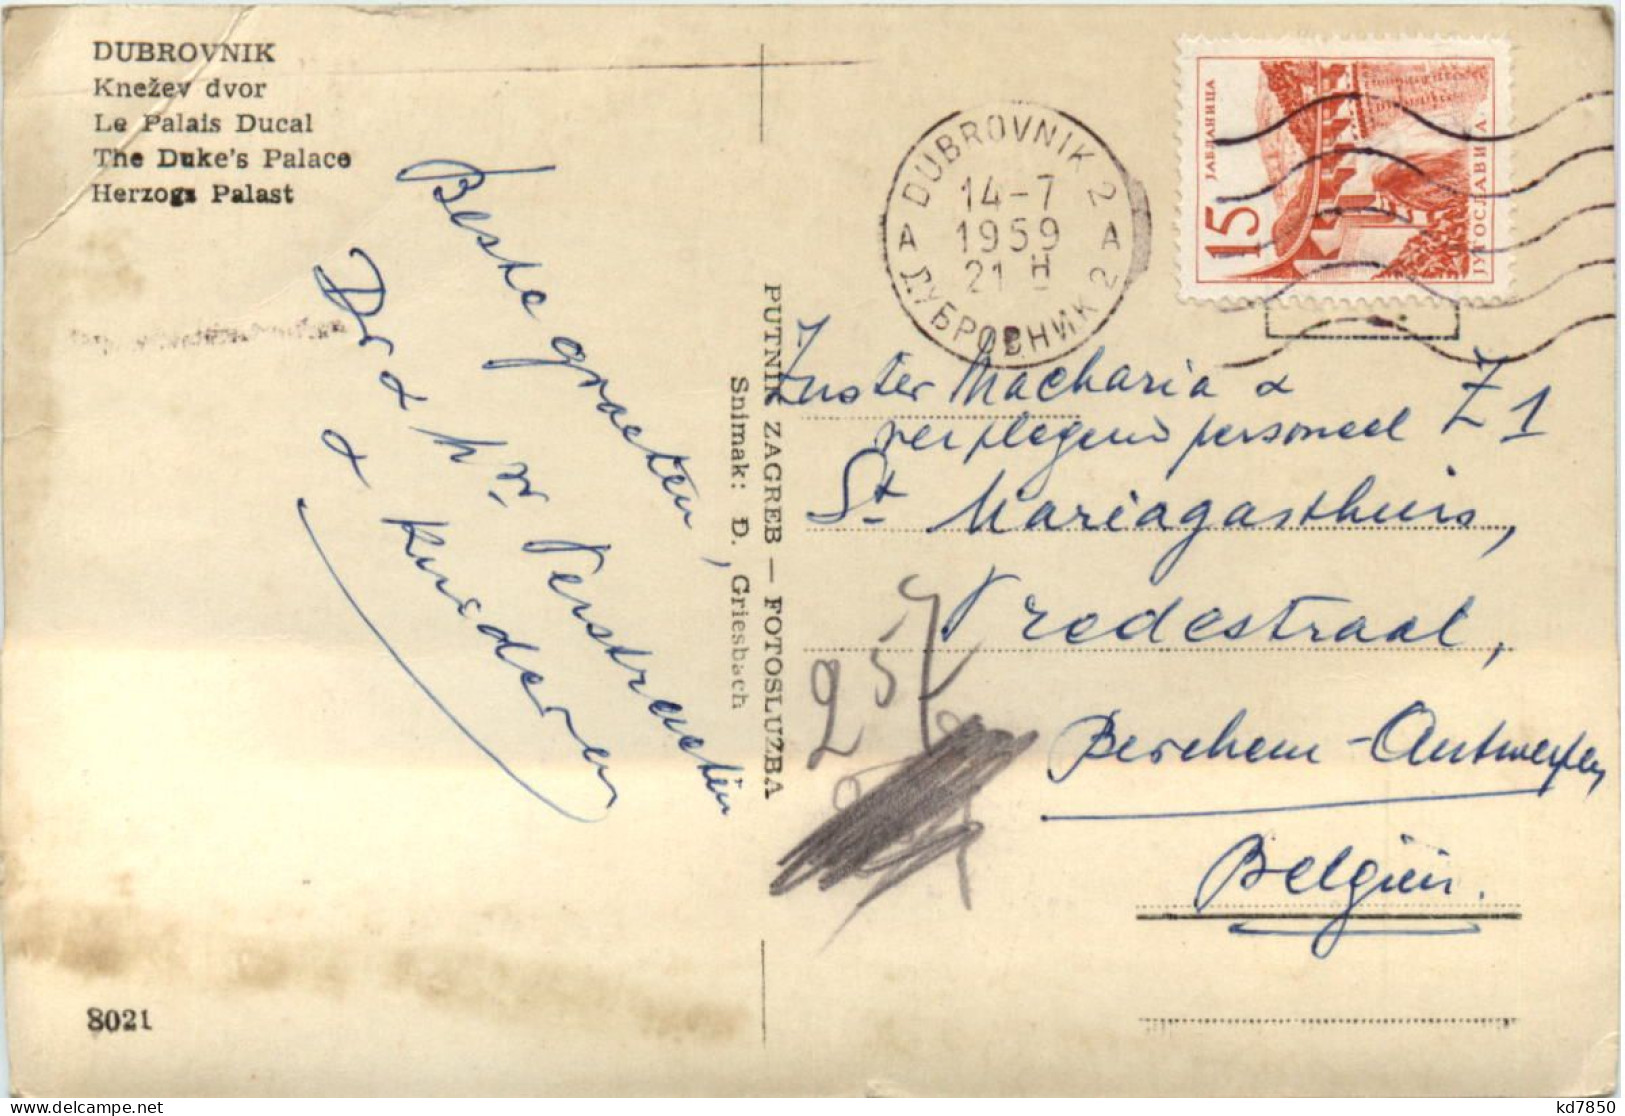 DUBROVNIK
Knežev dvor
Le Palais Ducal
The Duke's Palace
Herzogs Palast
Beste groeten,
Dr & Mw. Verstraeten
& kinderen
8021
PUTNIK ZAGREB — FOTOSLUŽBA
Snimak: Đ. Griesbach
DUBROVNIK 2
14-7
1959
21
A A
ДУБРОВНИК 2
ЈАБЛАНИЦА
15
ЈУГОСЛАВИЈА
Zuster Macharia &
verplegend personeel Z 1
St. Mariagasthuis,
Vredestraat,
Berchem - Antwerpen
België.
25
kd7850